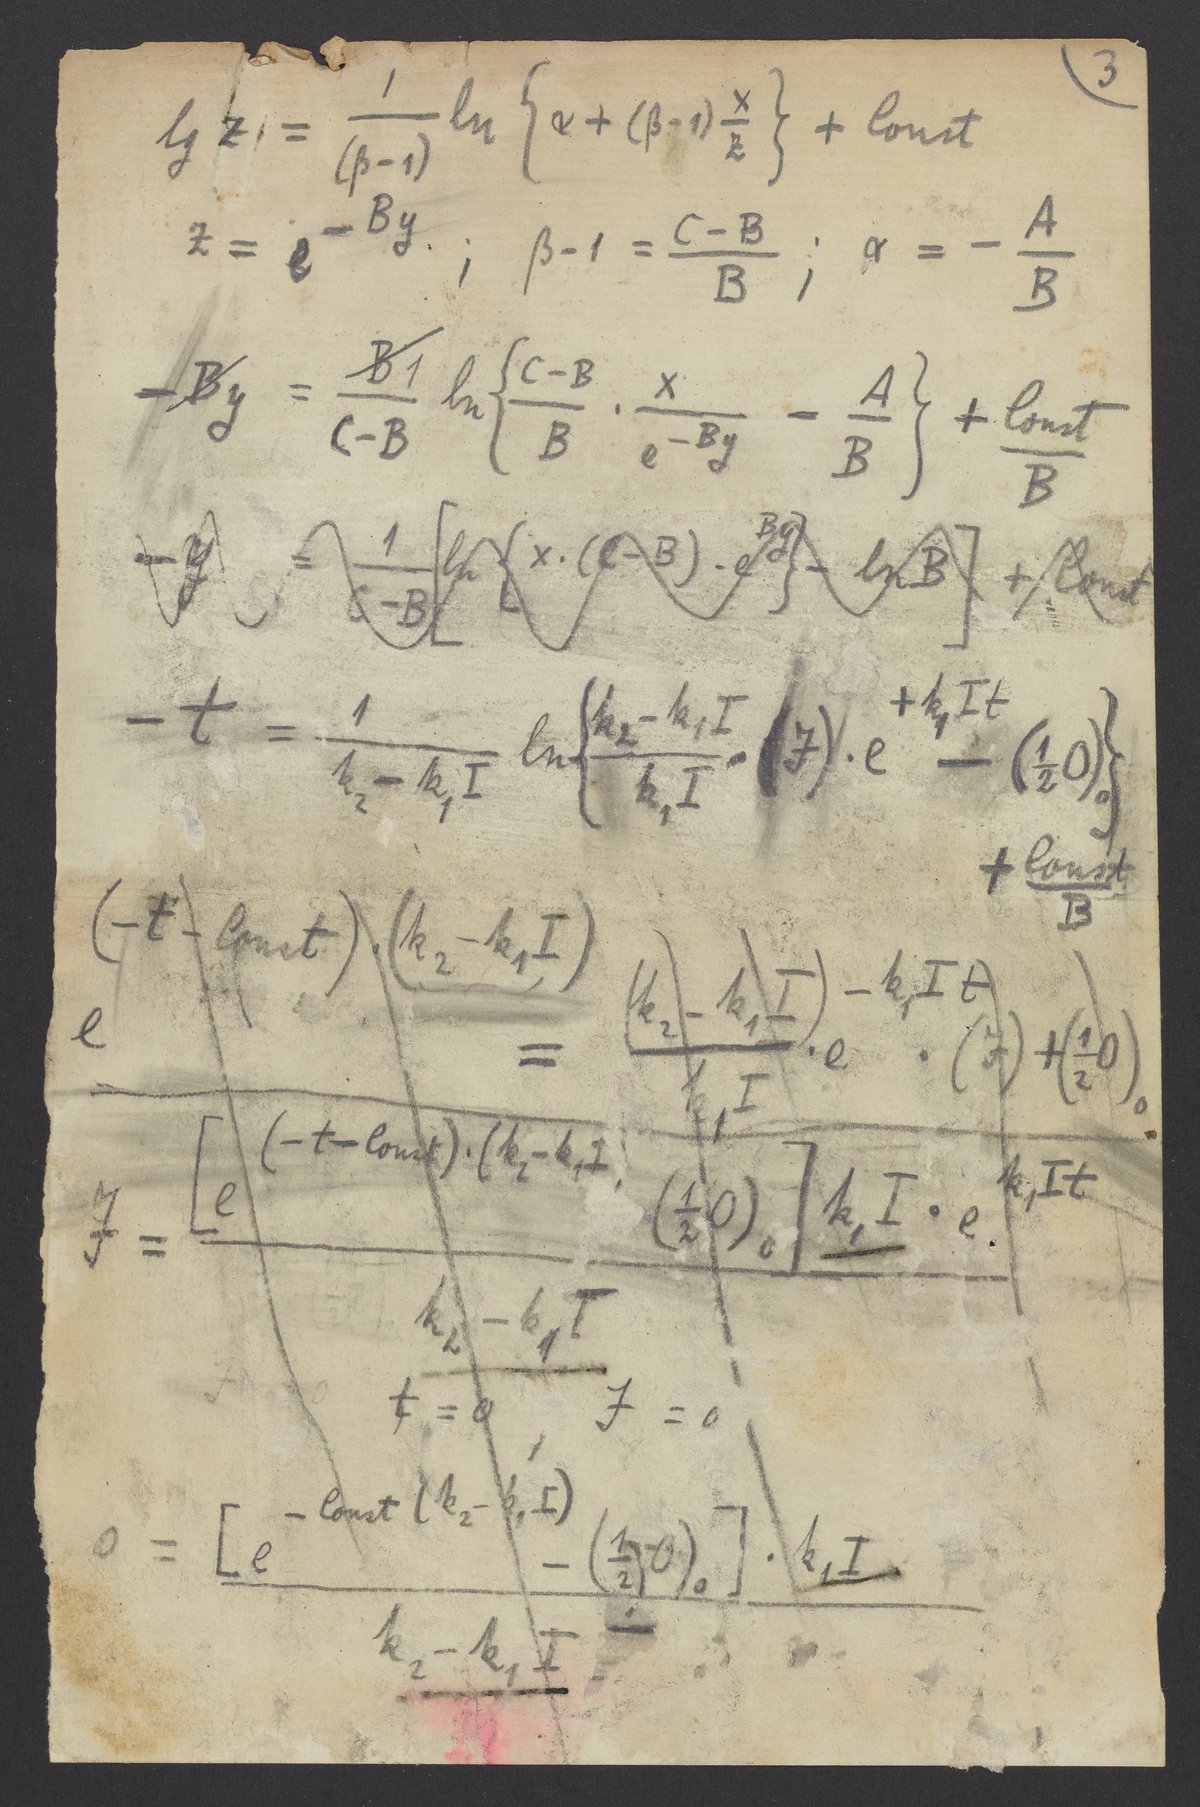 3
lg z = 1/(β-1) ln {α + (β-1) x/z} + Const
z = e^{-By} ; β-1 = (C-B)/B ; α = - A/B
-By = B1/(C-B) ln {(C-B)/B · x/e^{-By} - A/B} + Const/B
-y = 1/(C-B) [ln {x·(C-B)·e^{By}} - ln B] + Const
-t = 1/(k₂-k₁I) ln {(k₂-k₁I)/(k₁I) · (J)·e^{+k₁It} - (½O)₀}
+ Const/B
e^{(-t-Const)·(k₂-k₁I)} = (k₂-k₁I)/(k₁I) · e^{-k₁It} · (J) + (½O)₀
J = [e^{(-t-Const)·(k₂-k₁I} (½O)₀] k₁I · e^{k₁It} / (k₂-k₁I)
t = 0, J = 0
0 = [e^{-Const(k₂-k₁I)} - (½O)₀] · k₁I / (k₂-k₁I)